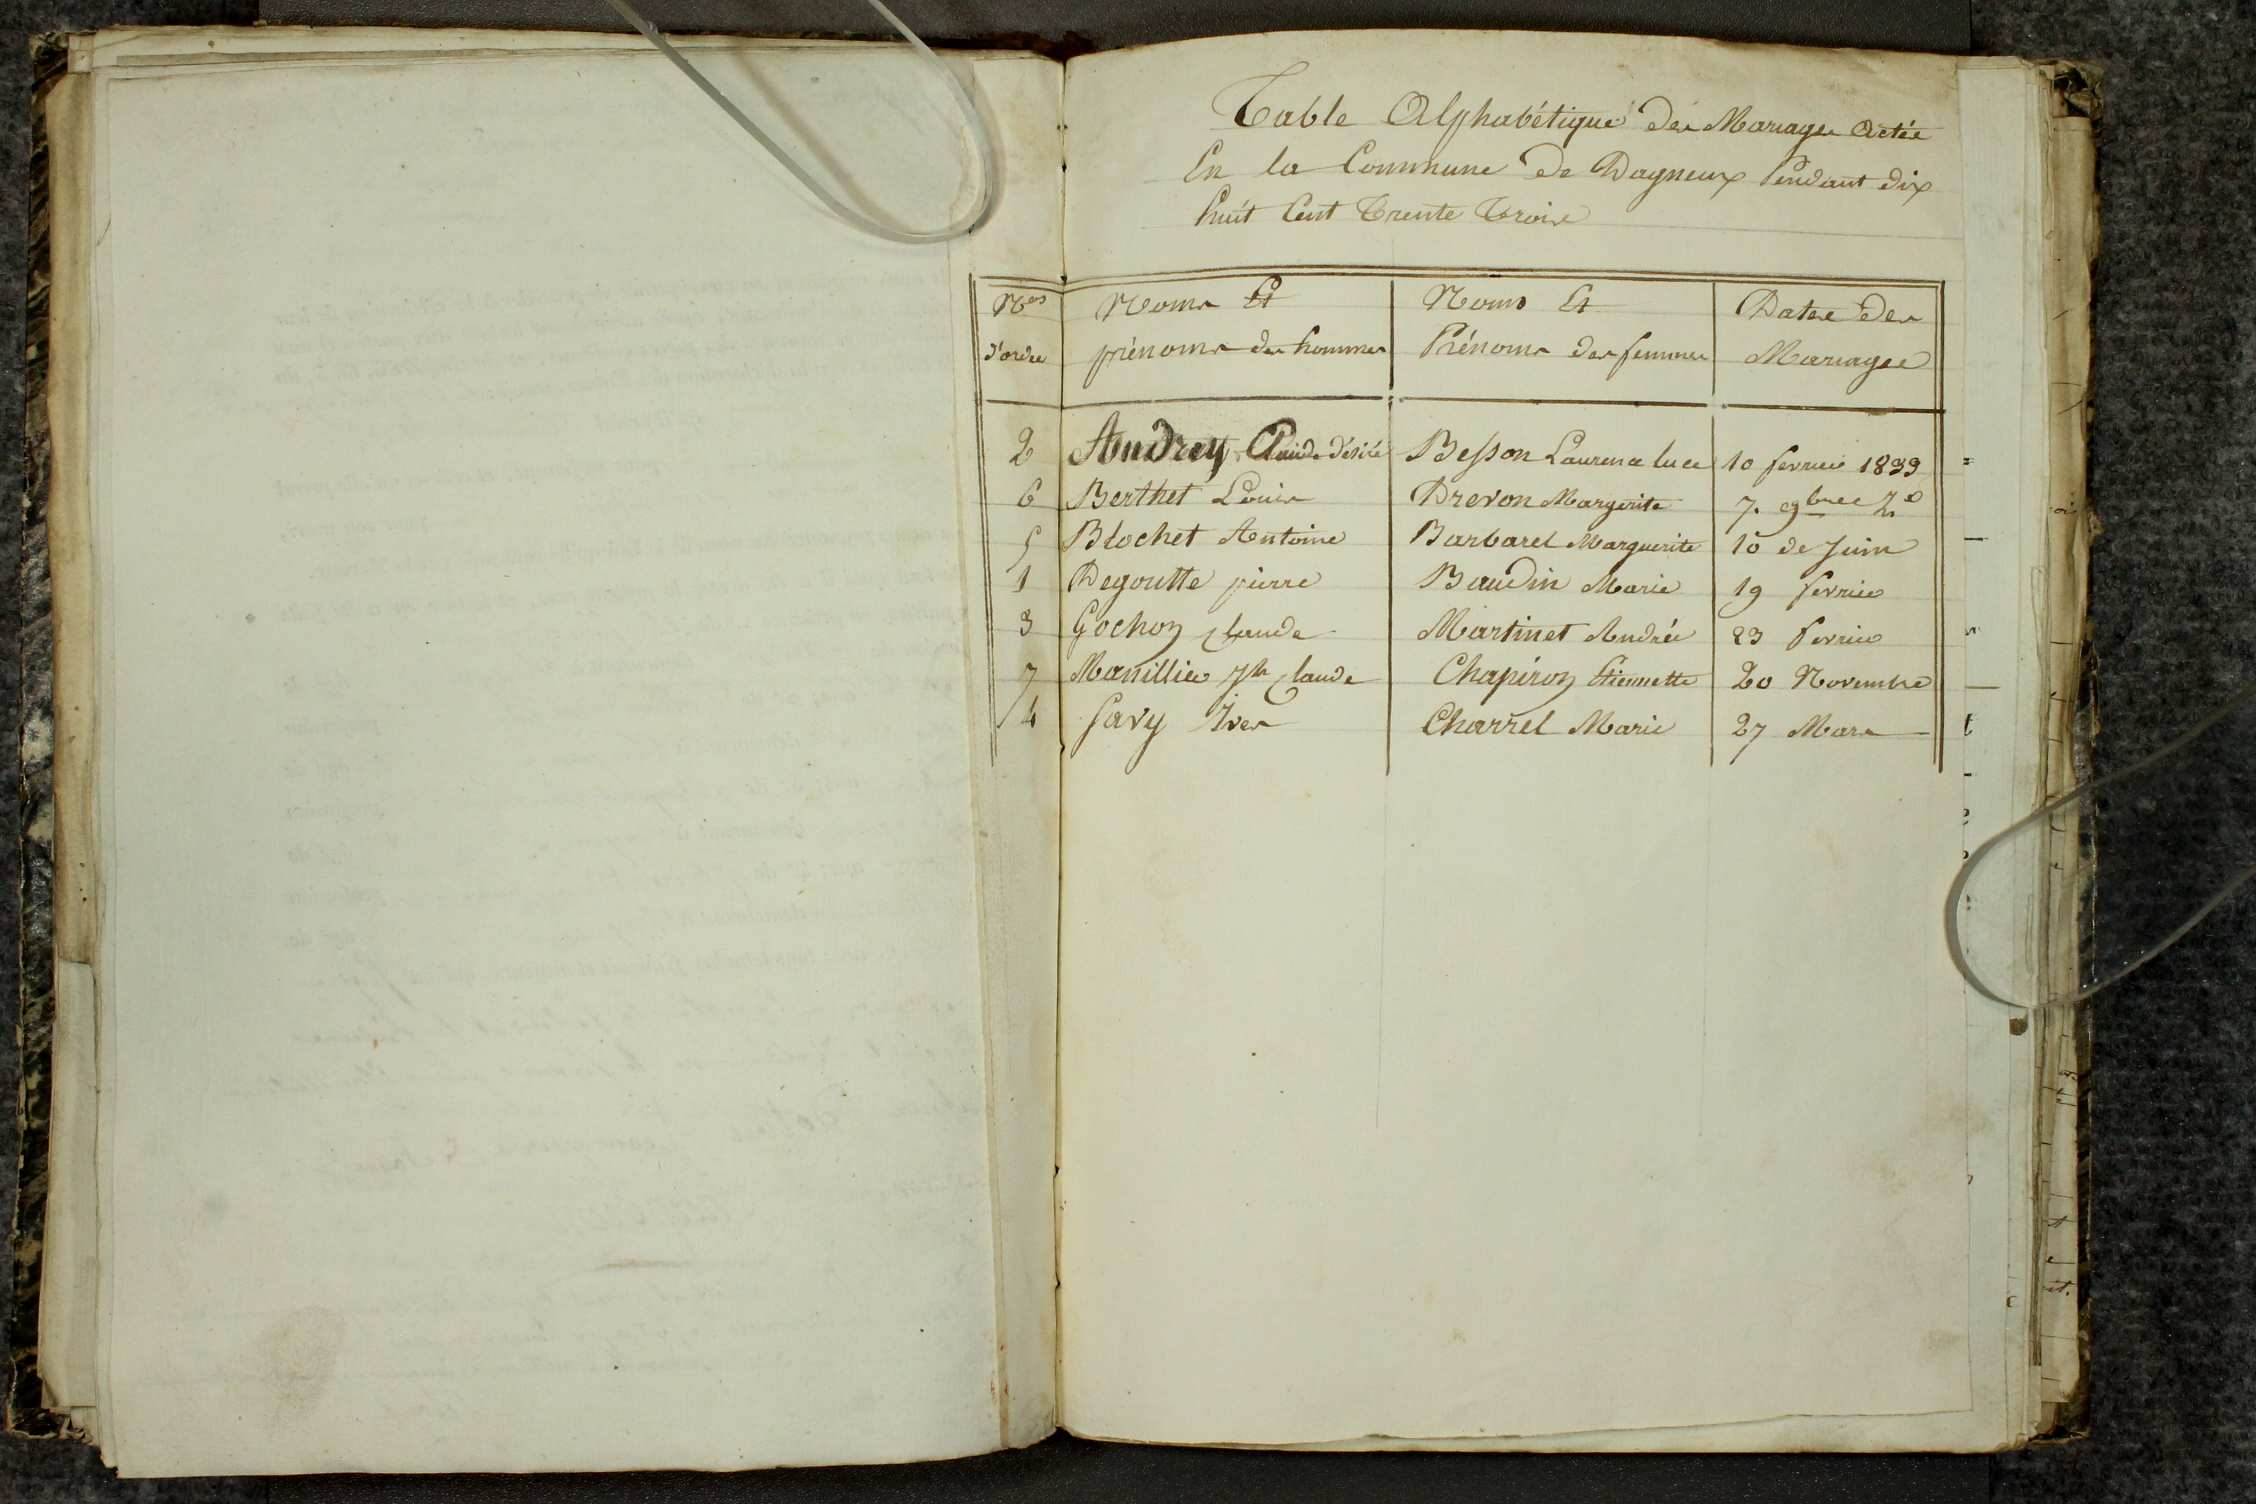 Table Alphabétique des Mariages Actés
En la Commune de Dagneux Pendant dix
huit Cent Trente Trois
Nos d'ordre | Noms Et prénoms des hommes | Noms Et Prénoms des femmes | Dates des Mariages
2 Andrey Claude Désiré Besson Laurence Luce 10 fevrier 1833
6 Berthet Louis Drevon Margerite 7. 9bre
5 Blochet Antoine Barbarel Marguerite 10 de Juin
1 Degoutte pierre Baudin Marie 19 fevrier
3 Gochon Claude Martinet Andrée 23 Fevrier
7 Manillier Jh Claude Chapiron Etiennette 20 Novembre
4 Savy Ives Charrel Marie 27 Mars